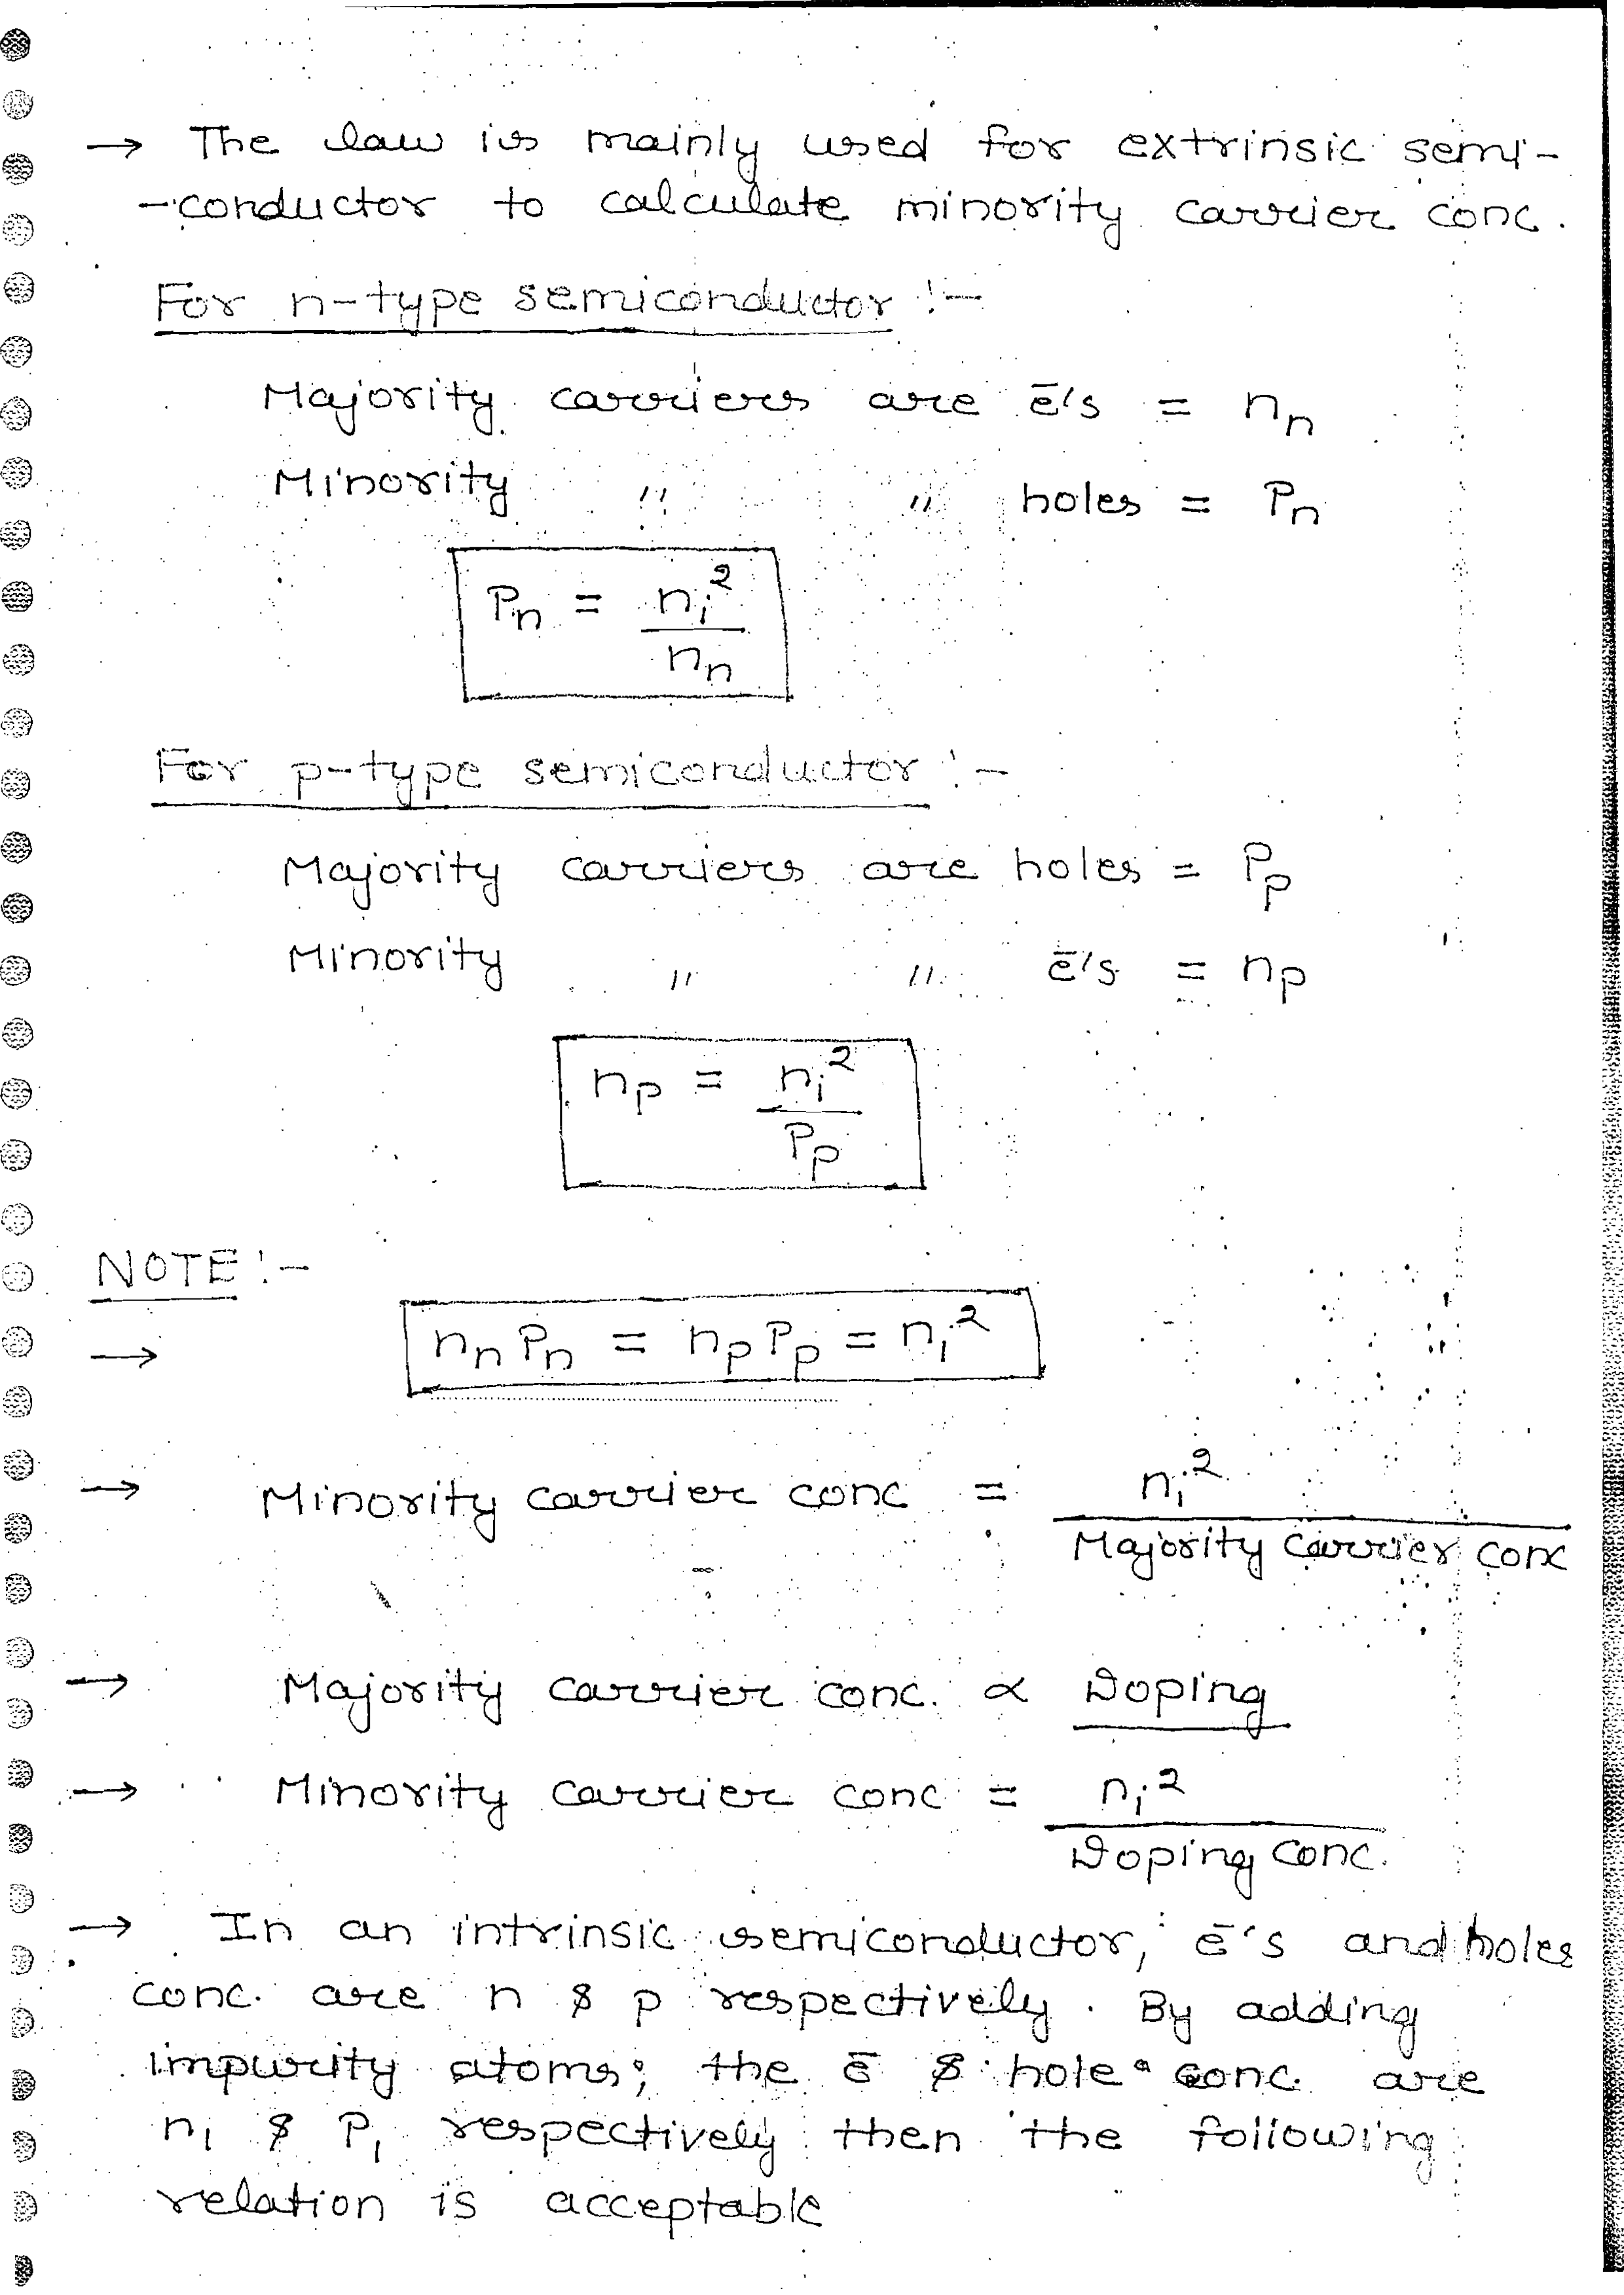 → The law is mainly used for extrinsic semi-
-conductor to calculate minority carrier conc.
For n-type semiconductor :-
Majority carriers are ē's = nₙ
Minority " " holes = Pₙ
Pₙ = nᵢ² / nₙ
For p-type semiconductor :-
Majority carriers are holes = Pₚ
Minority " " ē's = nₚ
nₚ = nᵢ² / Pₚ
NOTE :-
→ nₙ Pₙ = nₚ Pₚ = nᵢ²
→ Minority carrier conc = nᵢ² / Majority carrier conc
→ Majority carrier conc. ∝ Doping
→ Minority carrier conc = nᵢ² / Doping conc.
→ In an intrinsic semiconductor, ē's and holes
conc. are n & p respectively. By adding
impurity atoms; the ē & hole conc. are
n₁ & P₁ respectively then the following
relation is acceptable